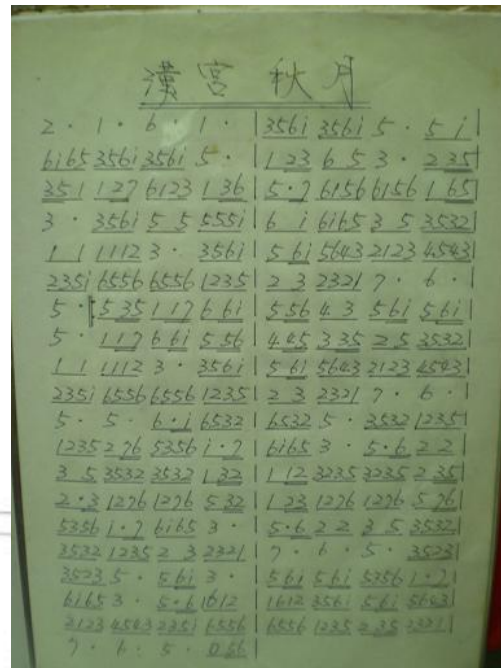 漢宮 秋月
2 · 1 · 6 · 1 · | 3561 3561 5 · 5 1
6165 3561 3561 5 · | 1 23 6 5 3 · 2 35
351 1 127 6123 1 36 | 5 · 7 6156 6156 1 65
3 · 3561 5 5 5551 | 6 1 6165 3 5 3532
1 1 1112 3 · 3561 | 5 61 5643 2123 4543
2351 6556 6556 1235 | 2 3 2321 7 · 6 ·
5 · 5 35 1 17 6 61 | 5 56 4 3 5 61 5 61
5 · 1 17 6 61 5 56 | 4 45 3 35 2 5 3532
1 1 1112 3 · 3561 | 5 61 5643 2123 4543
2351 6556 6556 1235 | 2 3 2321 7 · 6 ·
5 · 5 · 6 · 1 6532 | 6532 5 · 3532 1235
1235 276 5356 1 · 7 | 6165 3 · 5 · 6 2 2
3 5 3532 3532 1 32 | 1 12 3235 3235 2 35
2 · 3 1276 1276 5 32 | 1 23 1276 1276 5 76
5356 1 · 7 6165 3 · | 5 · 6 2 2 3 5 3532
3532 1235 2 3 2321 | 7 · 6 · 5 · 3523
3523 5 · 5 61 3 · | 5 61 5 61 5356 1 · 7
6165 3 · 5 · 6 1612 | 1612 3561 5 61 5643
2123 4543 2351 6556 | 6556 1235 2 35 2321
7 · 6 · 5 · 0 56